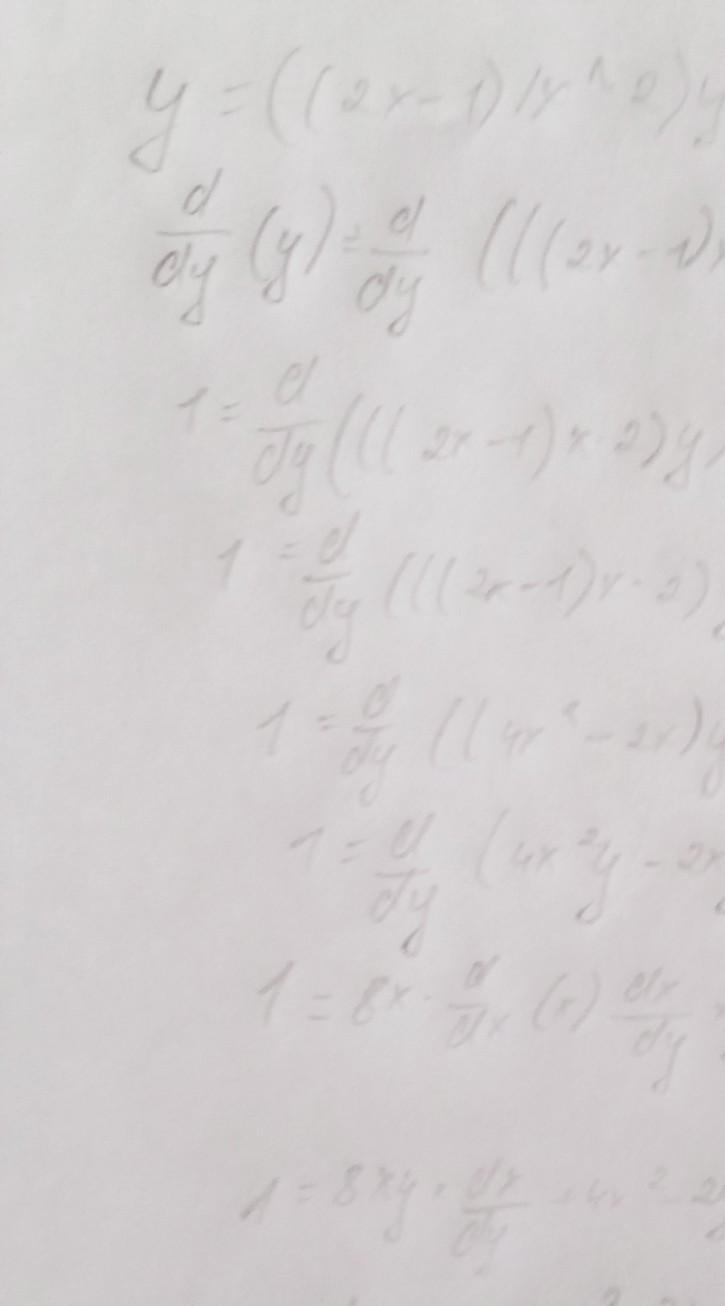 y = ((2x-1)/x^2)y
d/dy (y) = d/dy (((2x-1)x
1 = d/dy (((2x-1)x·2)y)
1 = d/dy (((2x-1)x·2)
1 = d/dy ((4x²-2x)y
1 = d/dy (4x²y - 2x
1 = 8x· d/dx (x) dx/dy
1 = 8xy · dx/dy + 4x² - 2